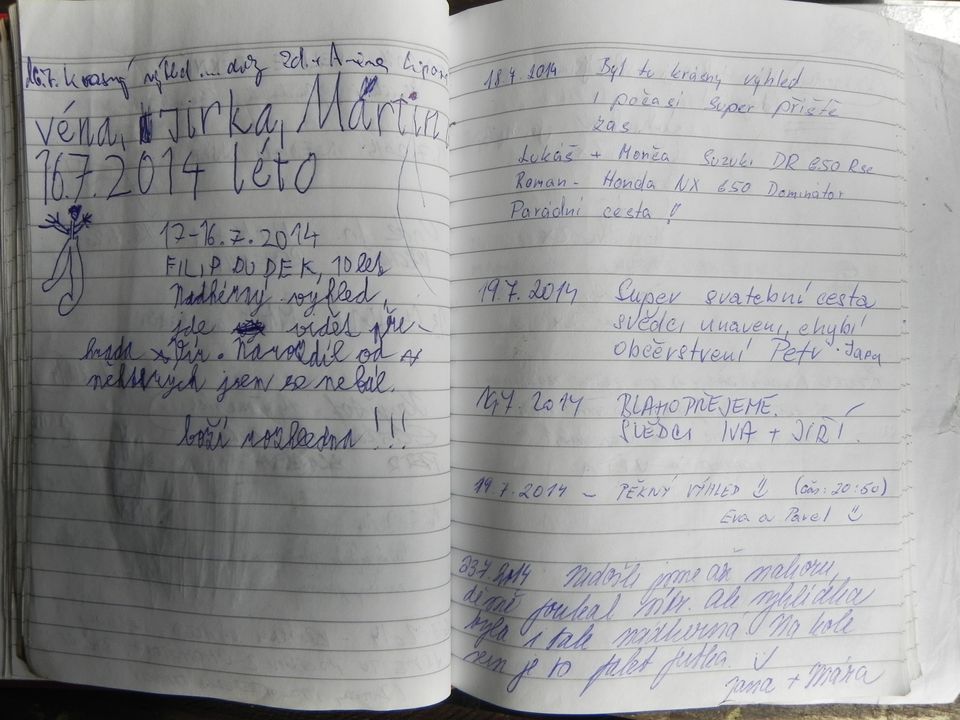 16.7. krásný výhled .... zd. + Anéna
véna, Jirka, Martin
16.7.2014 léto
17-16.7.2014
FILIP DUDEK, 10 let
Nadhérný výhled,
jde vidět pře-
hrada . Narozdíl od
některých jsem se nebál.
boží rozhledna !!!
18.7.2014 Byl to krásný výhled
i počasí super příště
zas
Lukáš + Monča Suzuki DR 650 Rse
Roman - Honda NX 650 Dominátor
Parádní cesta !
19.7.2014 Super svatební cesta
svědci unaveni, chybí
občerstvení Petr + Jana
19.7.2014 BLAHOPŘEJEME.
SVĚDCI IVA + JIŘÍ.
19.7.2014 - PĚKNÝ VÝHLED (čas: 20:50)
Eva a Pavel
23.7.2014 Nedošli jsme až nahoru,
děsně foukal vítr. Ale vyhlídka
byla i tak nádherná Na kole
sem je to fakt
Jana + Mára